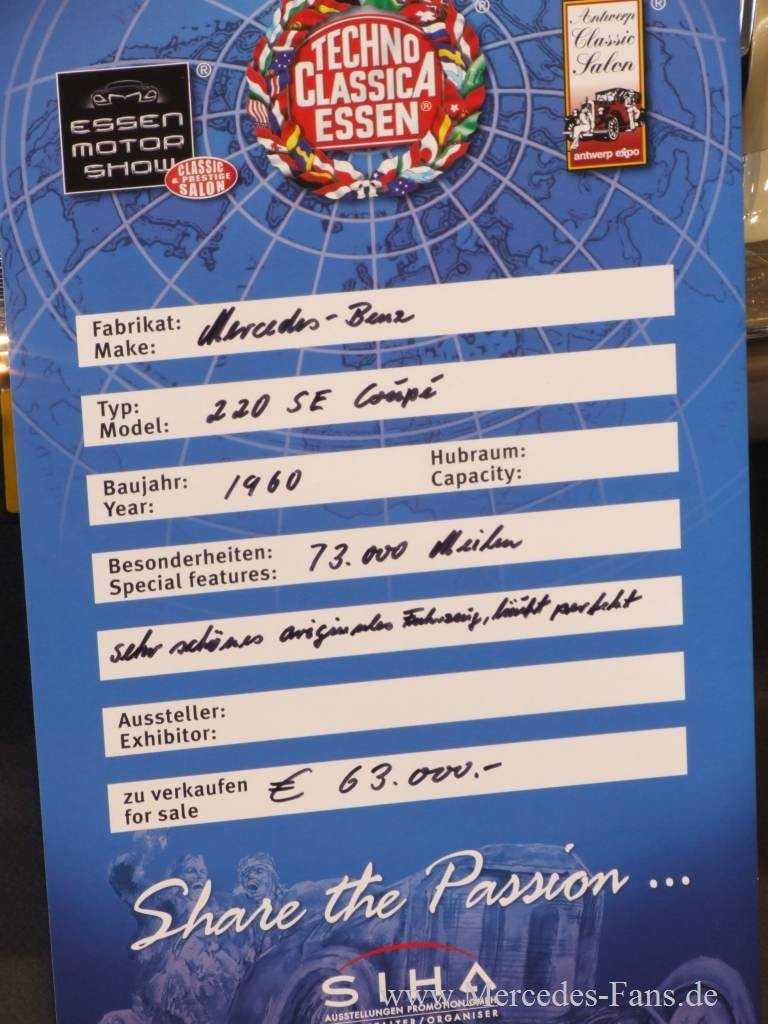 TECHNO
CLASSICA
ESSEN®
®
ESSEN
MOTOR
SHOW
®
CLASSIC
& PRESTIGE
SALON
Antwerp
Classic
Salon
antwerp expo
®
Fabrikat: Mercedes-Benz
Make:
Typ: 220 SE Coupé
Model:
Baujahr: 1960 Hubraum:
Year: Capacity:
Besonderheiten: 73.000 Meilen
Special features:
sehr schönes originales Fahrzeug, läuft perfekt
Aussteller:
Exhibitor:
zu verkaufen € 63.000.-
for sale
Share the Passion ...
SIHA
AUSSTELLUNGEN PROMOTION GMBH
/ORGANISER
www.Mercedes-Fans.de